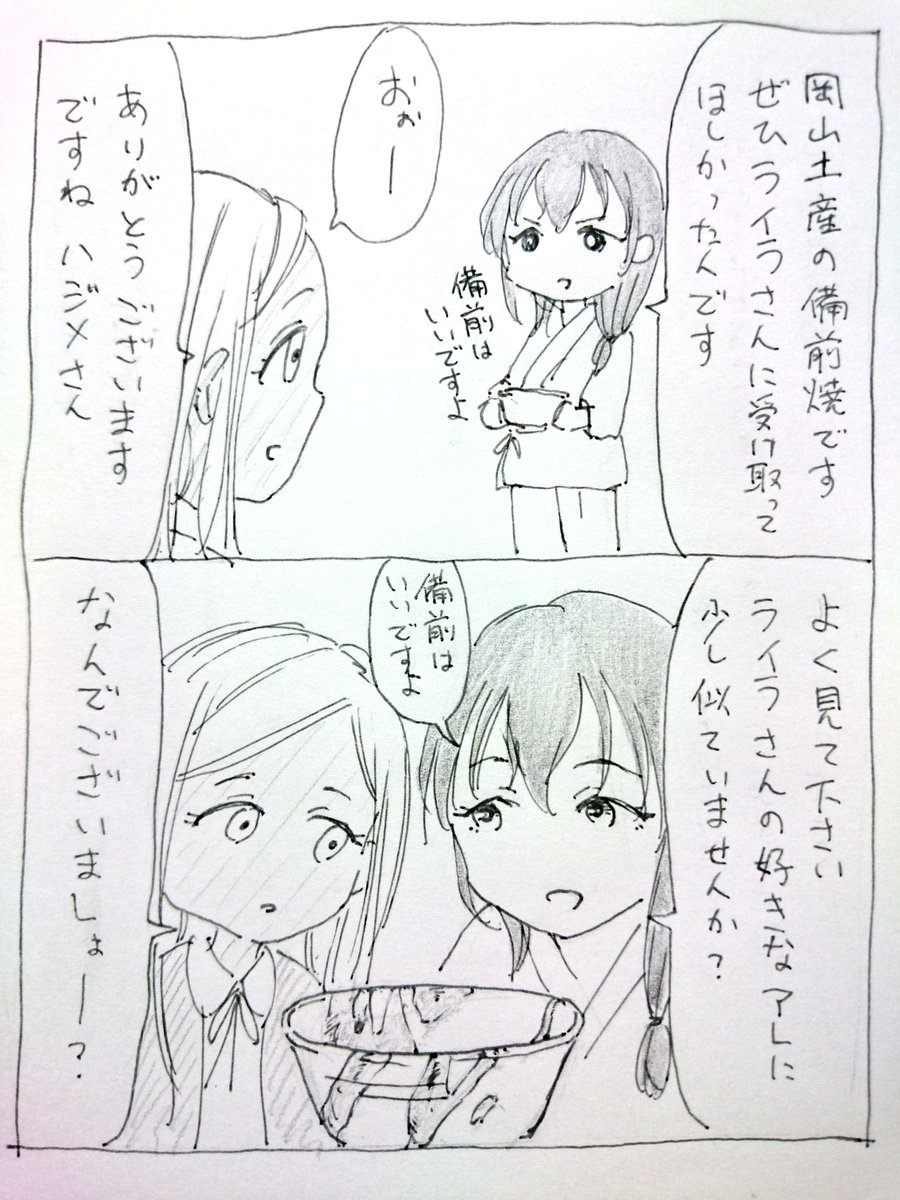 岡山土産の備前焼です
ぜひライラさんに受け取って
ほしかったんです
備前は
いいですよ
おぉー
ありがとうございます
ですね ハジメさん
よく見て下さい
ライラさんの好きなアレに
少し似ていませんか？
備前は
いいですよ
なんでございましょー？